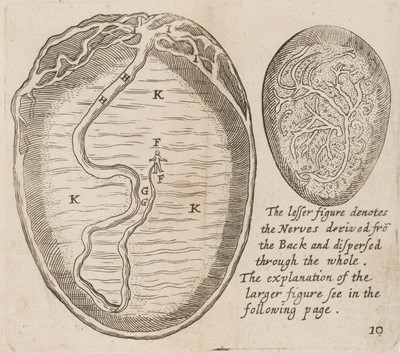 I I
H
H
K
F
F
K
G
G
K
The lesser figure denotes
the Nerves derived frõ
the Back and dispersed
through the whole.
The explanation of the
larger figure see in the
following page.
10